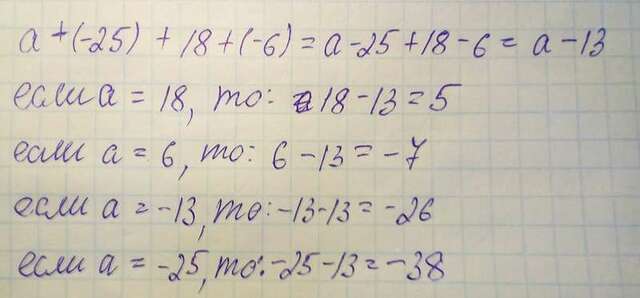 a + (-25) + 18 + (-6) = a - 25 + 18 - 6 = a - 13
если a = 18, то: 18 - 13 = 5
если a = 6, то: 6 - 13 = -7
если a = -13, то: -13 - 13 = -26
если a = -25, то: -25 - 13 = -38